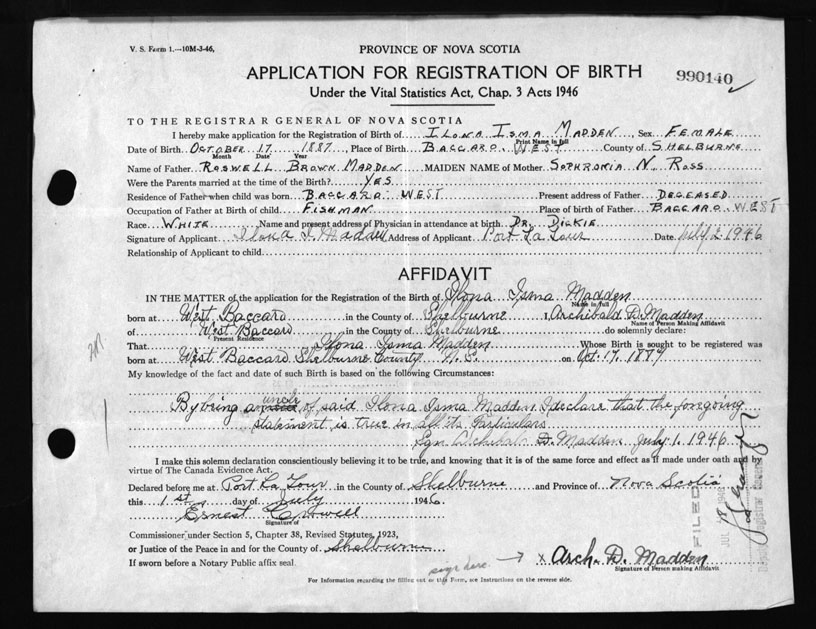 V. S. Form 1.—10M-3-46,
PROVINCE OF NOVA SCOTIA
APPLICATION FOR REGISTRATION OF BIRTH
990140
Under the Vital Statistics Act, Chap. 3 Acts 1946
TO THE REGISTRAR GENERAL OF NOVA SCOTIA
I hereby make application for the Registration of Birth of ILONA ISMA MADDEN, Sex FEMALE
Print Name in full
Date of Birth OCTOBER 17 1887, Place of Birth BACCARO. WEST County of SHELBURNE
Month Date Year
Name of Father ROSWELL BROWN MADDEN MAIDEN NAME of Mother SOPHRONIA N. ROSS
Were the Parents married at the time of the Birth? YES
Residence of Father when child was born BACCARO. WEST Present address of Father DECEASED
Occupation of Father at Birth of child FISHMAN Place of birth of Father BACCARO. WEST
Race WHITE Name and present address of Physician in attendance at birth DR. DICKIE
Signature of Applicant Ilona I. Madden Address of Applicant Port La Tour Date July 2 1946
Relationship of Applicant to child
AFFIDAVIT
IN THE MATTER of the application for the Registration of Birth of Ilona Isma Madden
Name in full
born at West Baccaro in the County of Shelburne I, Archibald D. Madden
Name of Person Making Affidavit
of West Baccaro in the County of Shelburne do solemnly declare:
Present Residence
That Ilona Isma Madden Whose Birth is sought to be registered was
born at West Baccaro Shelburne County N.S. on Oct. 17, 1887
My knowledge of the fact and date of such Birth is based on the following Circumstances:
uncle
By being a of said Ilona Isma Madden, I declare that the foregoing
statement is true in all its particulars
Sgn. Archibald D. Madden July 1. 1946
I make this solemn declaration conscientiously believing it to be true, and knowing that it is of the same force and effect as if made under oath and by
virtue of The Canada Evidence Act.
Declared before me at Port La Tour in the County of Shelburne and Province of Nova Scotia
this 1st day of July 1946
Ernest Crowell
Signature of
FILED
JUL 18 1946
Deputy Registrar General
Commissioner under Section 5, Chapter 38, Revised Statutes, 1923,
or Justice of the Peace in and for the County of Shelburne
If sworn before a Notary Public affix seal.
sign here → x Arch. D. Madden
Signature of Person making Affidavit
For Information regarding the filling out of this Form, see Instructions on the reverse side.